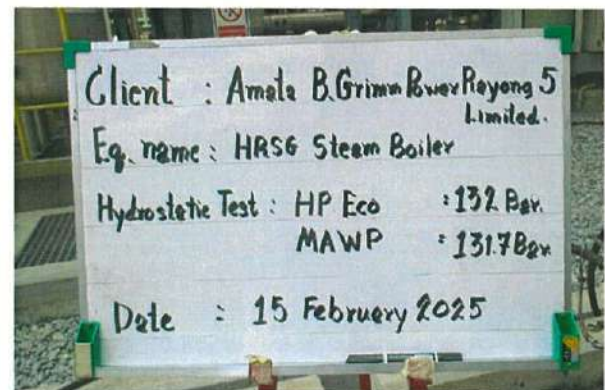 Client : Amata B.Grimm Power Rayong 5
Limited.
Eq. name : HRSG Steam Boiler
Hydrostatic Test : HP Eco : 132 Bar.
MAWP : 131.7 Bar
Date : 15 February 2025